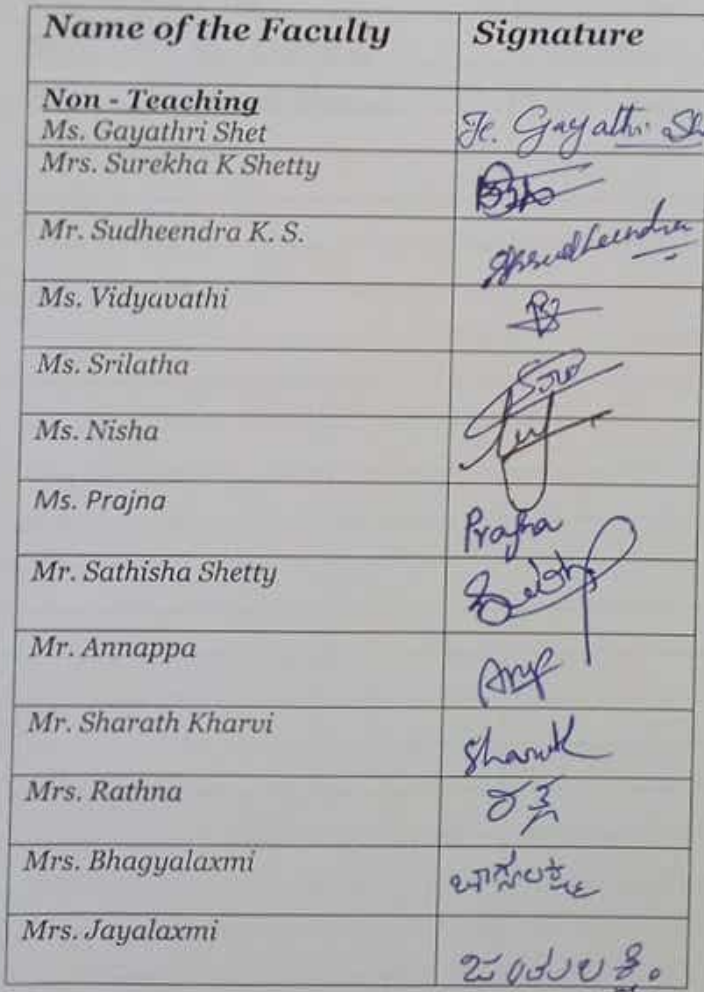 Name of the Faculty Signature
Non - Teaching
Ms. Gayathri Shet Gayathri Sh
Mrs. Surekha K Shetty
Mr. Sudheendra K. S. sudheendra
Ms. Vidyavathi
Ms. Srilatha
Ms. Nisha
Ms. Prajna Prajna
Mr. Sathisha Shetty
Mr. Annappa
Mr. Sharath Kharvi Sharath
Mrs. Rathna ರತ್ನ
Mrs. Bhagyalaxmi
Mrs. Jayalaxmi